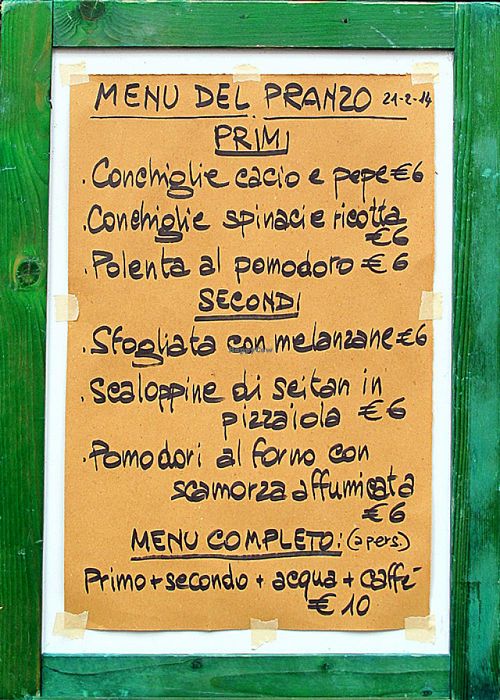 MENU DEL PRANZO 21-2-14
PRIMI
. Conchiglie cacio e pepe €6
. Conchiglie spinaci e ricotta
€6
. Polenta al pomodoro €6
SECONDI
. Sfogliata con melanzane €6
. Scaloppine di seitan in
pizzaiola €6
. Pomodori al forno con
scamorza affumicata
€6
MENU COMPLETO: (a pers.)
Primo + secondo + acqua + caffè
€ 10